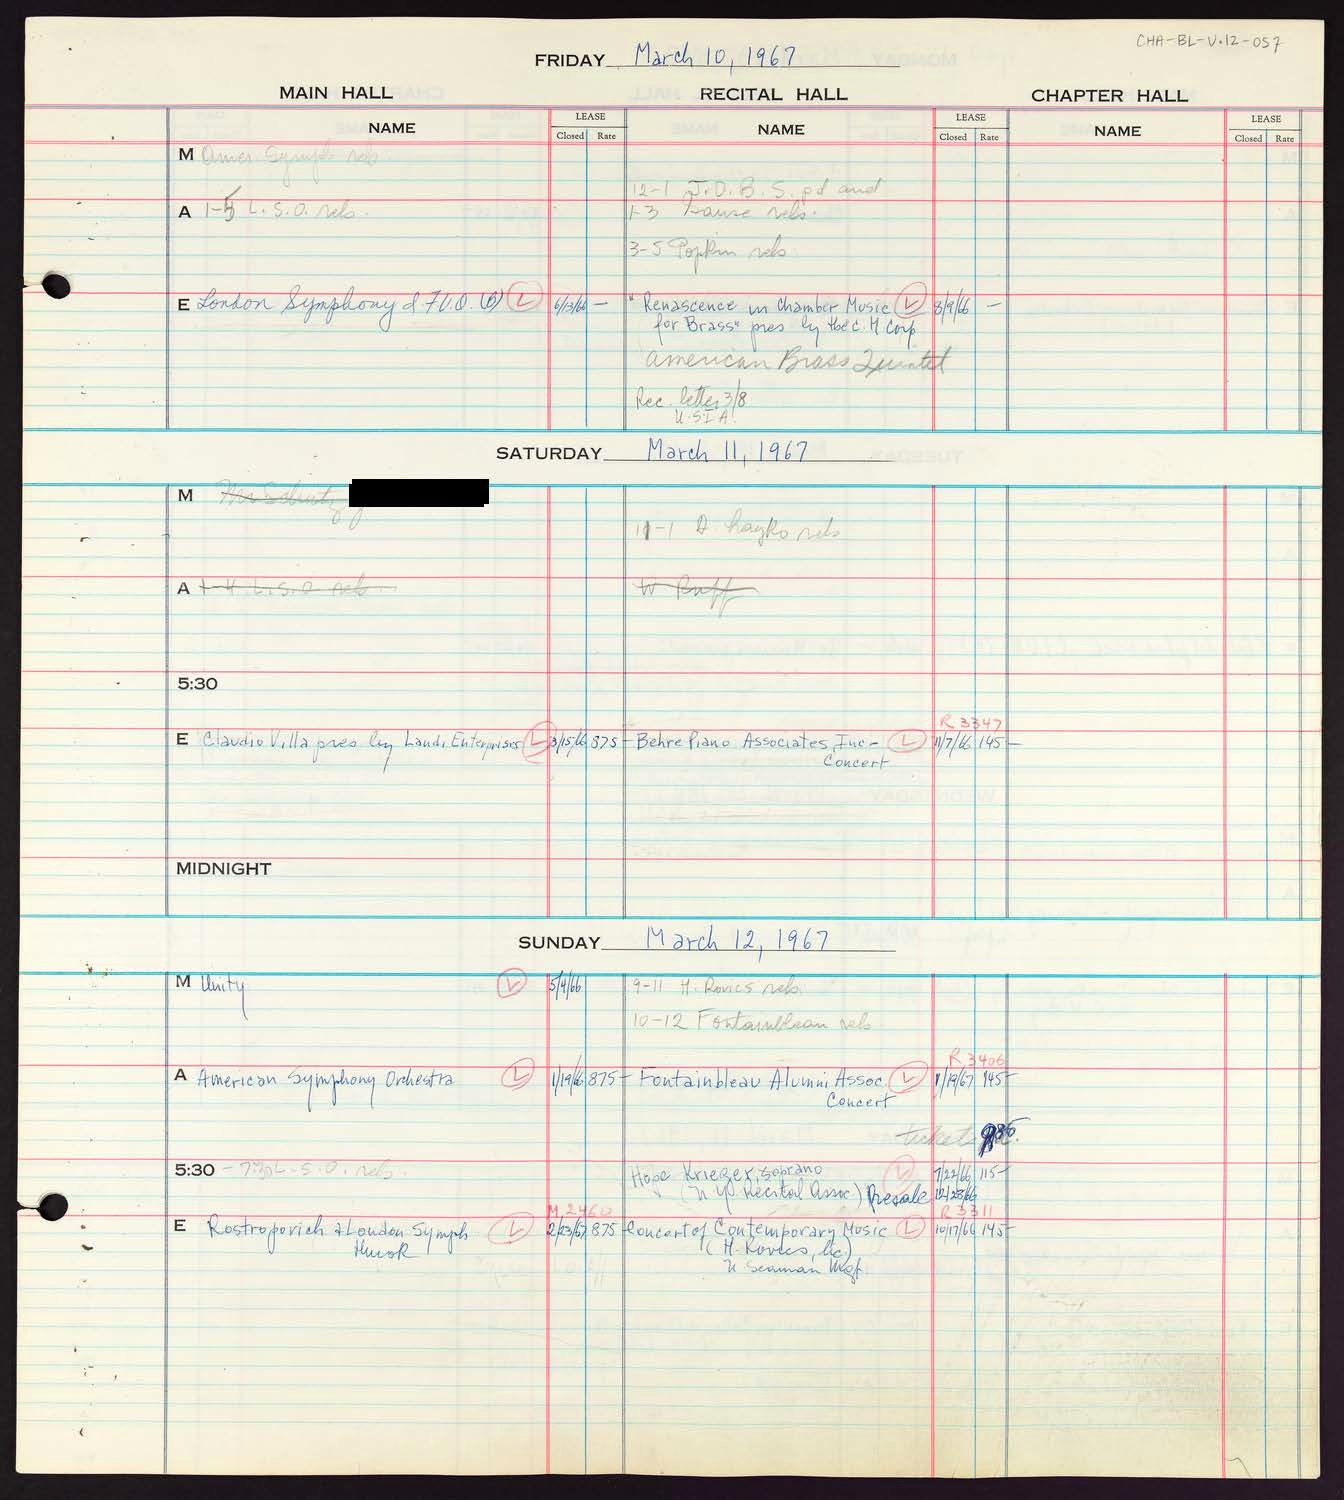 CHA-BL-V.12-057
FRIDAY March 10, 1967
MAIN HALL RECITAL HALL CHAPTER HALL
NAME LEASE NAME LEASE NAME LEASE
Closed Rate Closed Rate Closed Rate
M Amer. Symph rehs
12-1 J.D.B.S. pd and
A 1-5 L.S.O. rehs. 1-3 rehs.
3-5 Popkin rehs
E London Symphony (B) L 6/13/66 — "Renascence in Chamber Music L 8/9/66 —
for Brass" pres by the C.H Corp
American Brass Quintet
Rec. letter 3/8
U.S.I.A.
SATURDAY March 11, 1967
M Mr Schutz
11-1 D. hayko rehs
A 1-4 L.S.O. rehs. W Ruff
5:30
R 3347
E Claudio Villa pres by Landi Enterprises L 3/15/66 875- Behre Piano Associates, Inc- L 11/7/66 145—
Concert
MIDNIGHT
SUNDAY March 12, 1967
M Unity L 5/4/66 9-11 H. Rovics rehs.
10-12 Fontainbleau rehs
R 3406
A American Symphony Orchestra L 1/19/66 875- Fontainbleau Alumni Assoc. L 1/19/67 145-
Concert
tickets
5:30 - 7:30 L.S.O. rehs. Hope Krieger, soprano L 7/22/66 115-
(N.Y. Recital Assoc.) Presale 12/28/66
M 2460 R 3311
E Rostropovich & London Symph L 2/23/67 875 Concert of Contemporary Music L 10/17/66 145-
Hurok (H. Rovics, lic.)
N Seaman Mgt